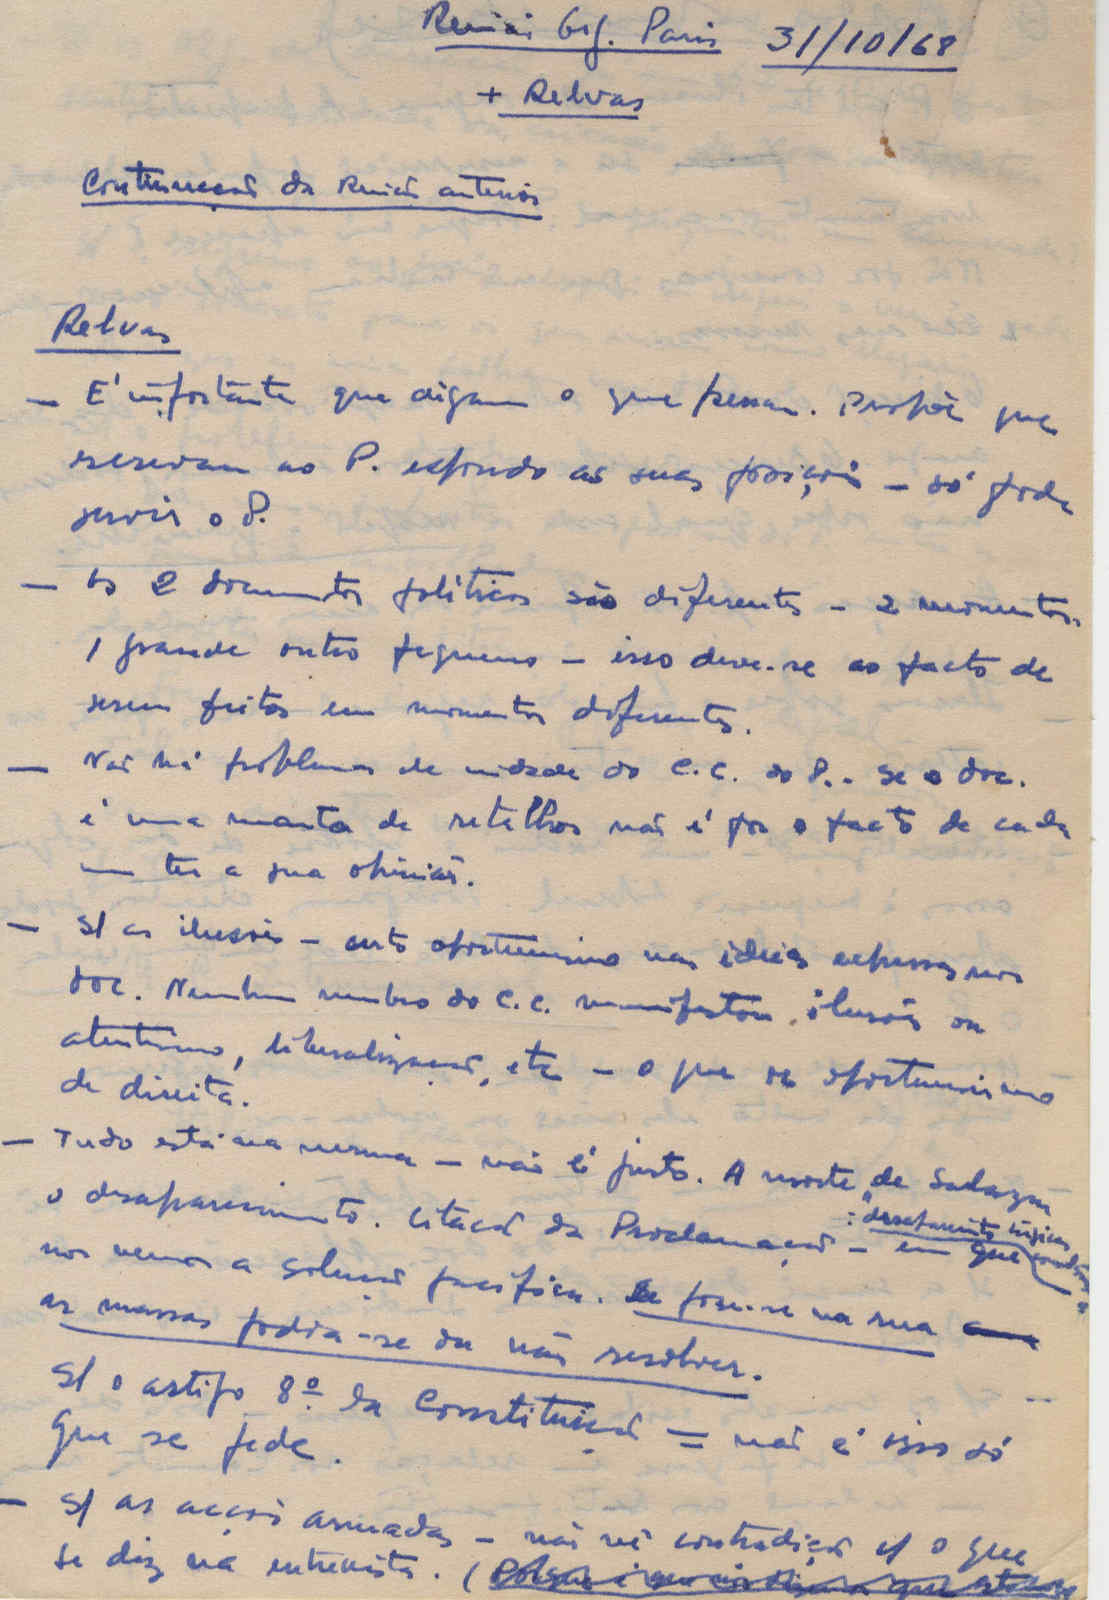 Reunião Org. Paris 31/10/68
+ Relvas
Continuação da reunião anterior
Relvas
— É importante que digam o que pensam. Propõe que
escrevam ao P. expondo as suas posições — só pode
servir o P.
— Os 2 documentos políticos são diferentes — 2 momentos.
1 grande outro pequeno — isso deve-se ao facto de
serem feitos em momentos diferentes.
— Não há problemas de unidade do C.C. do P.. Se o doc.
é uma manta de retalhos não é por o facto de cada
um ter a sua opinião.
— S/ as ilusões — certo oportunismo nas ideias expressas nos
doc. Nenhum membro do C.C. manifestou ilusões ou
atentismo, liberalização, etc — o que é oportunismo
de direita.
— Tudo está na mesma — não é justo. A morte de Salazar
o desaparecimento. Citação da Proclamação — em que
: "desfecho
nós vemos a solução pacífica. Se fosse na rua
as massas podia-se ou não resolver.
S/ o artigo 8º da Constituição = não é isso só
que se pede.
— S/ as acções armadas — não vê contradição c/ o que
se diz na entrevista. (